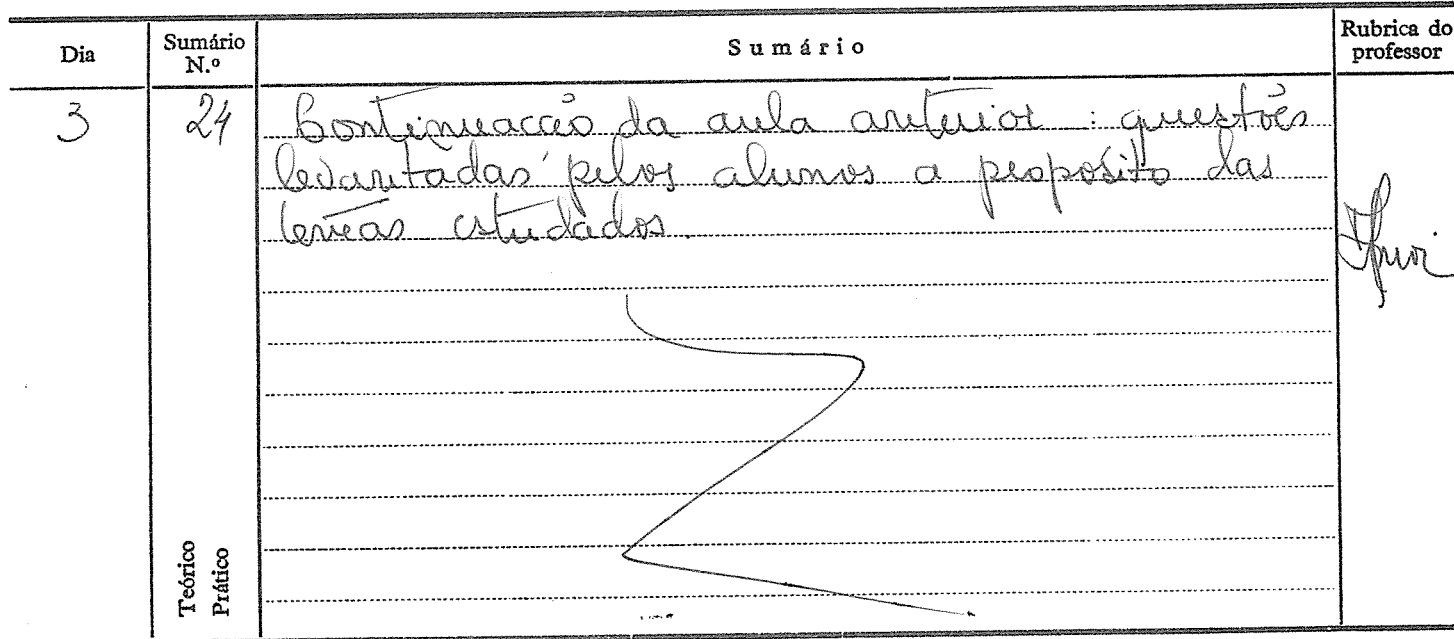 Dia
Sumário N.º
Sumário
Rubrica do professor
3
24
Continuação da aula anterior : questões
levantadas pelos alunos a propósito das
estudados.
Teórico
Prático